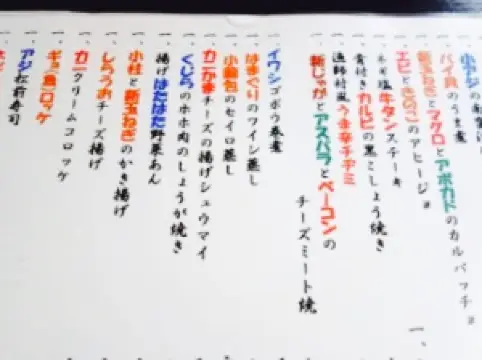 一、小アジの南蛮漬け
一、バイ貝のうま煮
一、新玉ねぎとマグロとアボカドのカルパッチョ
一、エビときのこのアヒージョ
一、ネギ塩牛タンステーキ
一、骨付きカルビの黒こしょう焼き
一、漁師村風うま辛チヂミ
一、新じゃがとアスパラとベーコンの
チーズミート焼
一、イワシゴボウ巻煮
一、はまぐりのワイン蒸し
一、小籠包のセイロ蒸し
一、カニかまチーズの揚げシュウマイ
一、くじらのホホ肉のしょうが焼き
一、揚げはたはた野菜あん
一、小柱と新玉ねぎのかき揚げ
一、しらうおチーズ揚げ
一、カニクリームコロッケ
一、ギョ(魚)ロッケ
一、アジ松前寿司